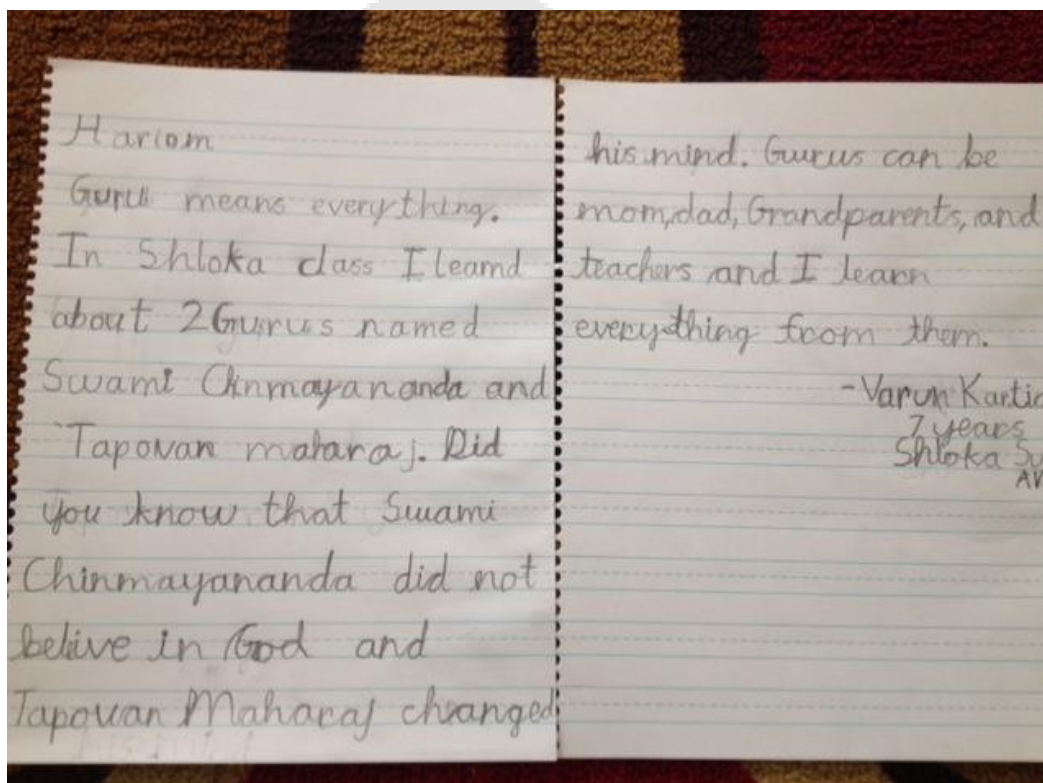 Hariom
Guru means everything.
In Shloka class I learnd
about 2 Gurus named
Swami Chinmayananda and
Tapovan maharaj. Did
you know that Swami
Chinmayananda did not
belive in God and
Tapovan Maharaj changed
his mind. Gurus can be
mom, dad, Grandparents, and
teachers and I learn
everything from them.
- Varun Kartic
7 years
Shloka